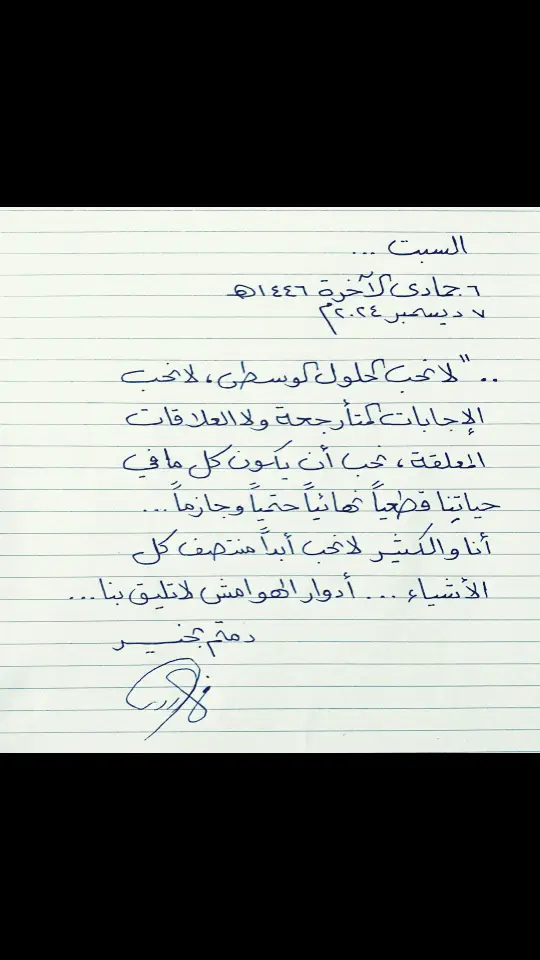 السبت ...
٦ جمادى الآخرة ١٤٤٦هـ
٧ ديسمبر ٢٠٢٤م
.. "لا نحب الحلول الوسطى، لا نحب
الإجابات المتأرجحة ولا العلاقات
المعلقة، نحب أن يكون كل ما في
حياتنا قطعياً نهائياً حتمياً وجازماً ...
أنا والكثير لا نحب أبداً منتصف كل
الأشياء ... أدوار الهوامش لا تليق بنا ...
دمتم بخير